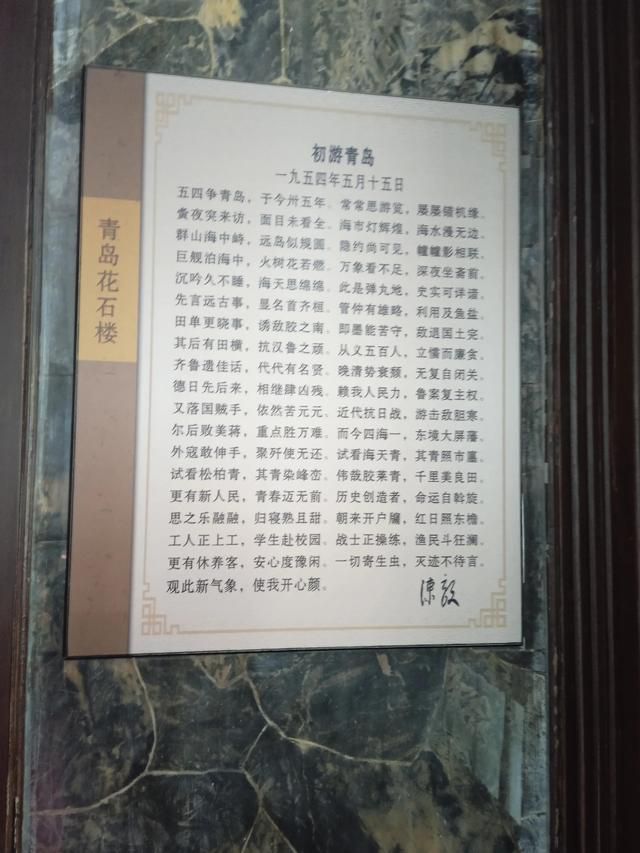 青岛花石楼
初游青岛
一九五四年五月十五日
五四争青岛，于今卅五年。常常思游览，屡屡错机缘。
夤夜突来访，面目未看全。海市灯辉煌，海水漫无边。
群山海中峙，远岛似规圆。隐约尚可见，幢幢影相联。
巨舰泊海中，火树花若燃。万象看不足，深夜坐斋前。
沉吟久不睡，海天思绵绵。此是弹丸地，史实可详谙。
先言远古事，显名首齐桓。管仲有雄略，利用及鱼盐。
田单更晓事，诱敌胶之南。即墨能苦守，敌退国土完。
其后有田横，抗汉鲁之顽。从义五百人，立懦而廉贪。
齐鲁遗佳话，代代有名贤。晚清势衰颓，无复自闭关。
德日先后来，相继肆凶残。赖我人民力，鲁案复主权。
又落国贼手，依然苦元元。近代抗日战，游击敌胆寒。
尔后败美蒋，重点胜万难。而今四海一，东境大屏藩。
外寇敢伸手，聚歼使无还。试看海天青，其青照市廛。
试看松柏青，其青染峰峦。伟哉胶莱青，千里美良田。
更有新人民，青春迈无前。历史创造者，命运自斡旋。
思之乐融融，归寝熟且甜。朝来开户牖，红日照东檐。
工人正上工，学生赴校园。战士正操练，渔民斗狂澜。
更有休养客，安心度豫闲。一切寄生虫，灭迹不待言。
观此新气象，使我开心颜。
陈毅